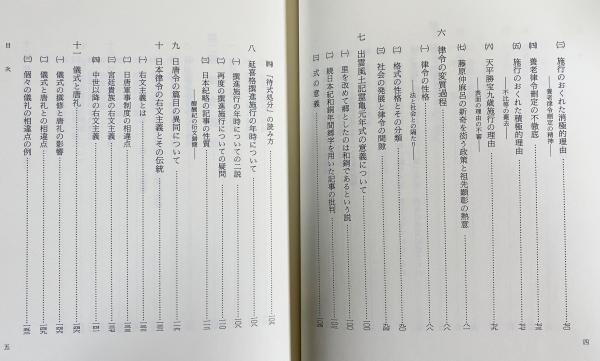 ㈢ 施行のおくれた消極的理由
——養老律令刪定の精神——
㈣ 養老律令刪定の不徹底
㈤ 施行のおくれた積極的理由
——不比等の薨去——
㈥ 天平勝宝九歳施行の理由
——表面の理由の不審——
㈦ 藤原仲麻呂の新奇を衒う政策と祖先顕彰の熱意
六 律令の変質過程
㈠ 律令の性格
——法と社会との隔たり——
㈡ 格式の性格とその分類
㈢ 社会の発展と律令の間隙
七 出雲風土記霊亀元年式の意義について
㈠ 里を改めて郷としたのは和銅であるという説
㈡ 続日本紀和銅年間郷字を用いた記事の批判
㈢ 式の意義
四
㈣ 「待式処分」の読み方
八 延喜格撰進施行の年時について
㈠ 撰進施行の年時についての二説
㈡ 再度の撰進施行についての疑問
㈢ 日本紀略の記事の性質
——醍醐紀の伝文錯簡——
九 日唐令の篇目の異同について
十 日本律令の右文主義とその伝統
㈠ 右文主義とは
㈡ 日唐軍事制度の相違点
㈢ 宮廷貴族の右文主義
㈣ 中世以降の右文主義
十一 儀式と唐礼
㈠ 儀式の撰修と唐礼の影響
㈡ 儀式と唐礼との相違点
㈢ 個々の儀礼の相違点の例
目次
五